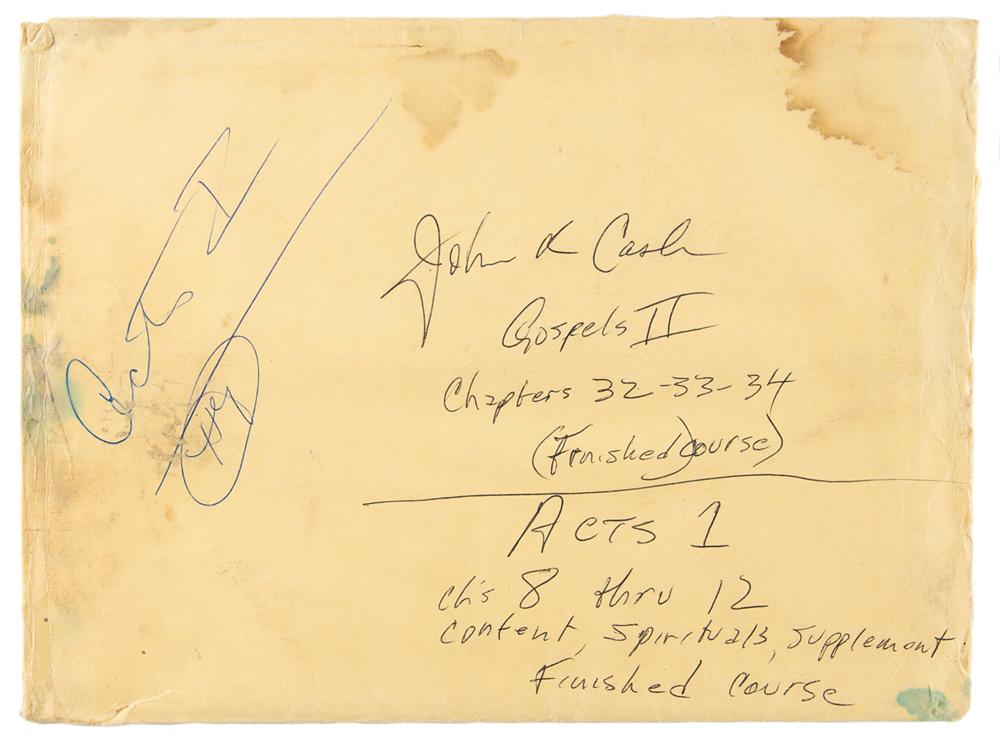 John R Cash
Gospels II
Chapters 32-33-34
(Finished Course)
ACTS 1
ch's 8 thru 12
content, Spirituals, Supplement
Finished Course
Acts I